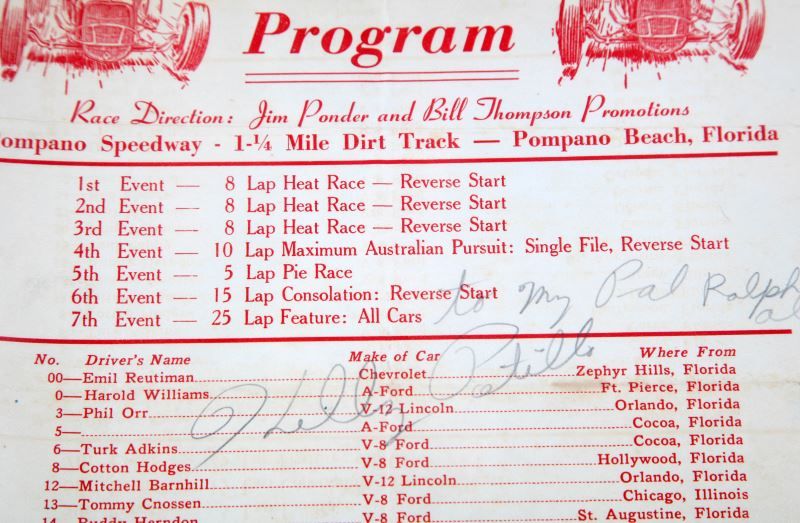 Program
Race Direction: Jim Ponder and Bill Thompson Promotions
ompano Speedway - 1-¼ Mile Dirt Track — Pompano Beach, Florida
1st Event — 8 Lap Heat Race — Reverse Start
2nd Event — 8 Lap Heat Race — Reverse Start
3rd Event — 8 Lap Heat Race — Reverse Start
4th Event — 10 Lap Maximum Australian Pursuit: Single File, Reverse Start
5th Event — 5 Lap Pie Race
6th Event — 15 Lap Consolation: Reverse Start
7th Event — 25 Lap Feature: All Cars
to My Pal Ralph
Kelly Petillo
No. Driver's Name Make of Car Where From
00—Emil Reutiman Chevrolet Zephyr Hills, Florida
0—Harold Williams A-Ford Ft. Pierce, Florida
3—Phil Orr V-12 Lincoln Orlando, Florida
5— A-Ford Cocoa, Florida
6—Turk Adkins V-8 Ford Cocoa, Florida
8—Cotton Hodges V-8 Ford Hollywood, Florida
12—Mitchell Barnhill V-12 Lincoln Orlando, Florida
13—Tommy Cnossen V-8 Ford Chicago, Illinois
14—Buddy Herndon V-8 Ford St. Augustine, Florida